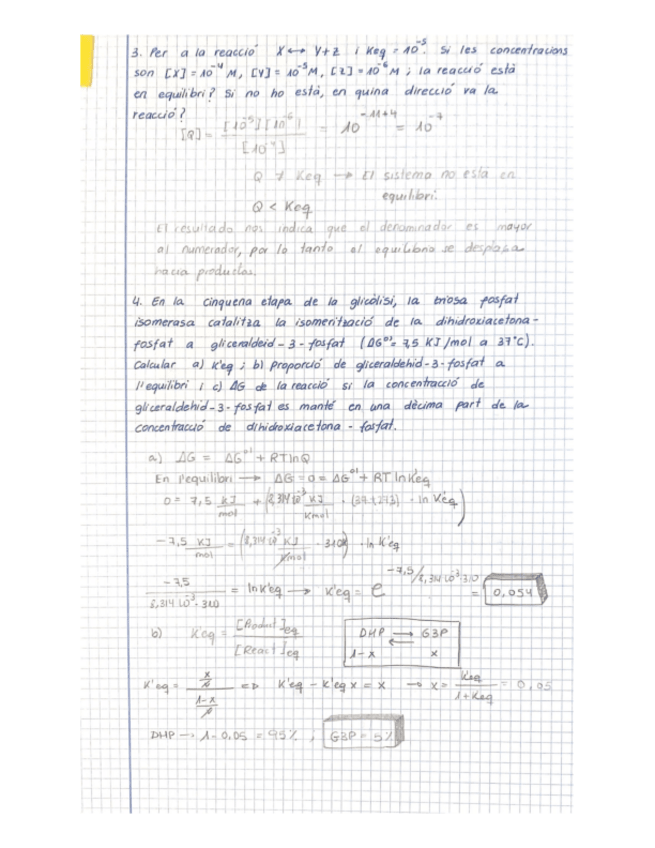 3. Per a la reacció X ↔ Y+Z i Keq = 10⁻⁵. Si les concentracions
son [X] = 10⁻⁴ M, [Y] = 10⁻⁵ M, [Z] = 10⁻⁶ M ; la reacció està
en equilibri? Si no ho està, en quina direcció va la
reacció?
[Q] = [10⁻⁵][10⁻⁶] / [10⁻⁴] = 10⁻¹¹⁺⁴ = 10⁻⁷
Q ≠ Keq → El sistema no està en
equilibri.
Q < Keq
El resultado nos indica que el denominador es mayor
al numerador, por lo tanto el equilibrio se desplaza
hacia productos.
4. En la cinquena etapa de la glicòlisi, la triosa fosfat
isomerasa catalitza la isomerització de la dihidroxiacetona-
fosfat a gliceraldeid-3-fosfat (ΔG°'= 7,5 KJ/mol a 37°C).
Calcular a) K'eq ; b) proporció de gliceraldehid-3-fosfat a
l'equilibri i c) ΔG de la reacció si la concentracció de
gliceraldehid-3-fosfat es manté en una dècima part de la
concentracció de dihidroxiacetona-fosfat.
a) ΔG = ΔG°' + RT lnQ
En l'equilibri → ΔG = 0 = ΔG°' + RT lnK'eq
0 = 7,5 KJ/mol + (8,314·10⁻³ KJ/Kmol · (37+273) · ln K'eq)
-7,5 KJ/mol = (8,314·10⁻³ KJ/Kmol · 310K) · ln K'eq
-7,5 / 8,314·10⁻³·310 = lnK'eq → K'eq = e^(-7,5/8,314·10⁻³·310) = 0,054
b) K'eq = [Product]eq / [React]eq
DHP ⇄ G3P
1-x x
K'eq = x / 1-x => K'eq - K'eq x = x → x = Keq / 1+Keq = 0,05
DHP → 1-0,05 = 95% ; G3P = 5%